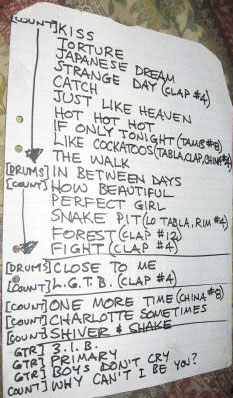 [COUNT] KISS
TORTURE
JAPANESE DREAM
STRANGE DAY (CLAP #4)
CATCH
JUST LIKE HEAVEN
HOT HOT HOT
IF ONLY TONIGHT (TAMB #8)
LIKE COCKATOOS (TABLA, CLAP, CHINA #4)
THE WALK
[DRUMS] IN BETWEEN DAYS
[COUNT] HOW BEAUTIFUL
PERFECT GIRL
SNAKE PIT (LO TABLA, RIM #4)
FOREST (CLAP #12)
FIGHT (CLAP #4)
[DRUMS] CLOSE TO ME
[COUNT] L.G.T.B. (CLAP #4)
[COUNT] ONE MORE TIME (CHINA #8)
[COUNT] CHARLOTTE SOMETIMES
[COUNT] SHIVER & SHAKE
GTR] 3.I.B.
GTR] PRIMARY
GTR] BOYS DON'T CRY
COUNT] WHY CAN'T I BE YOU?